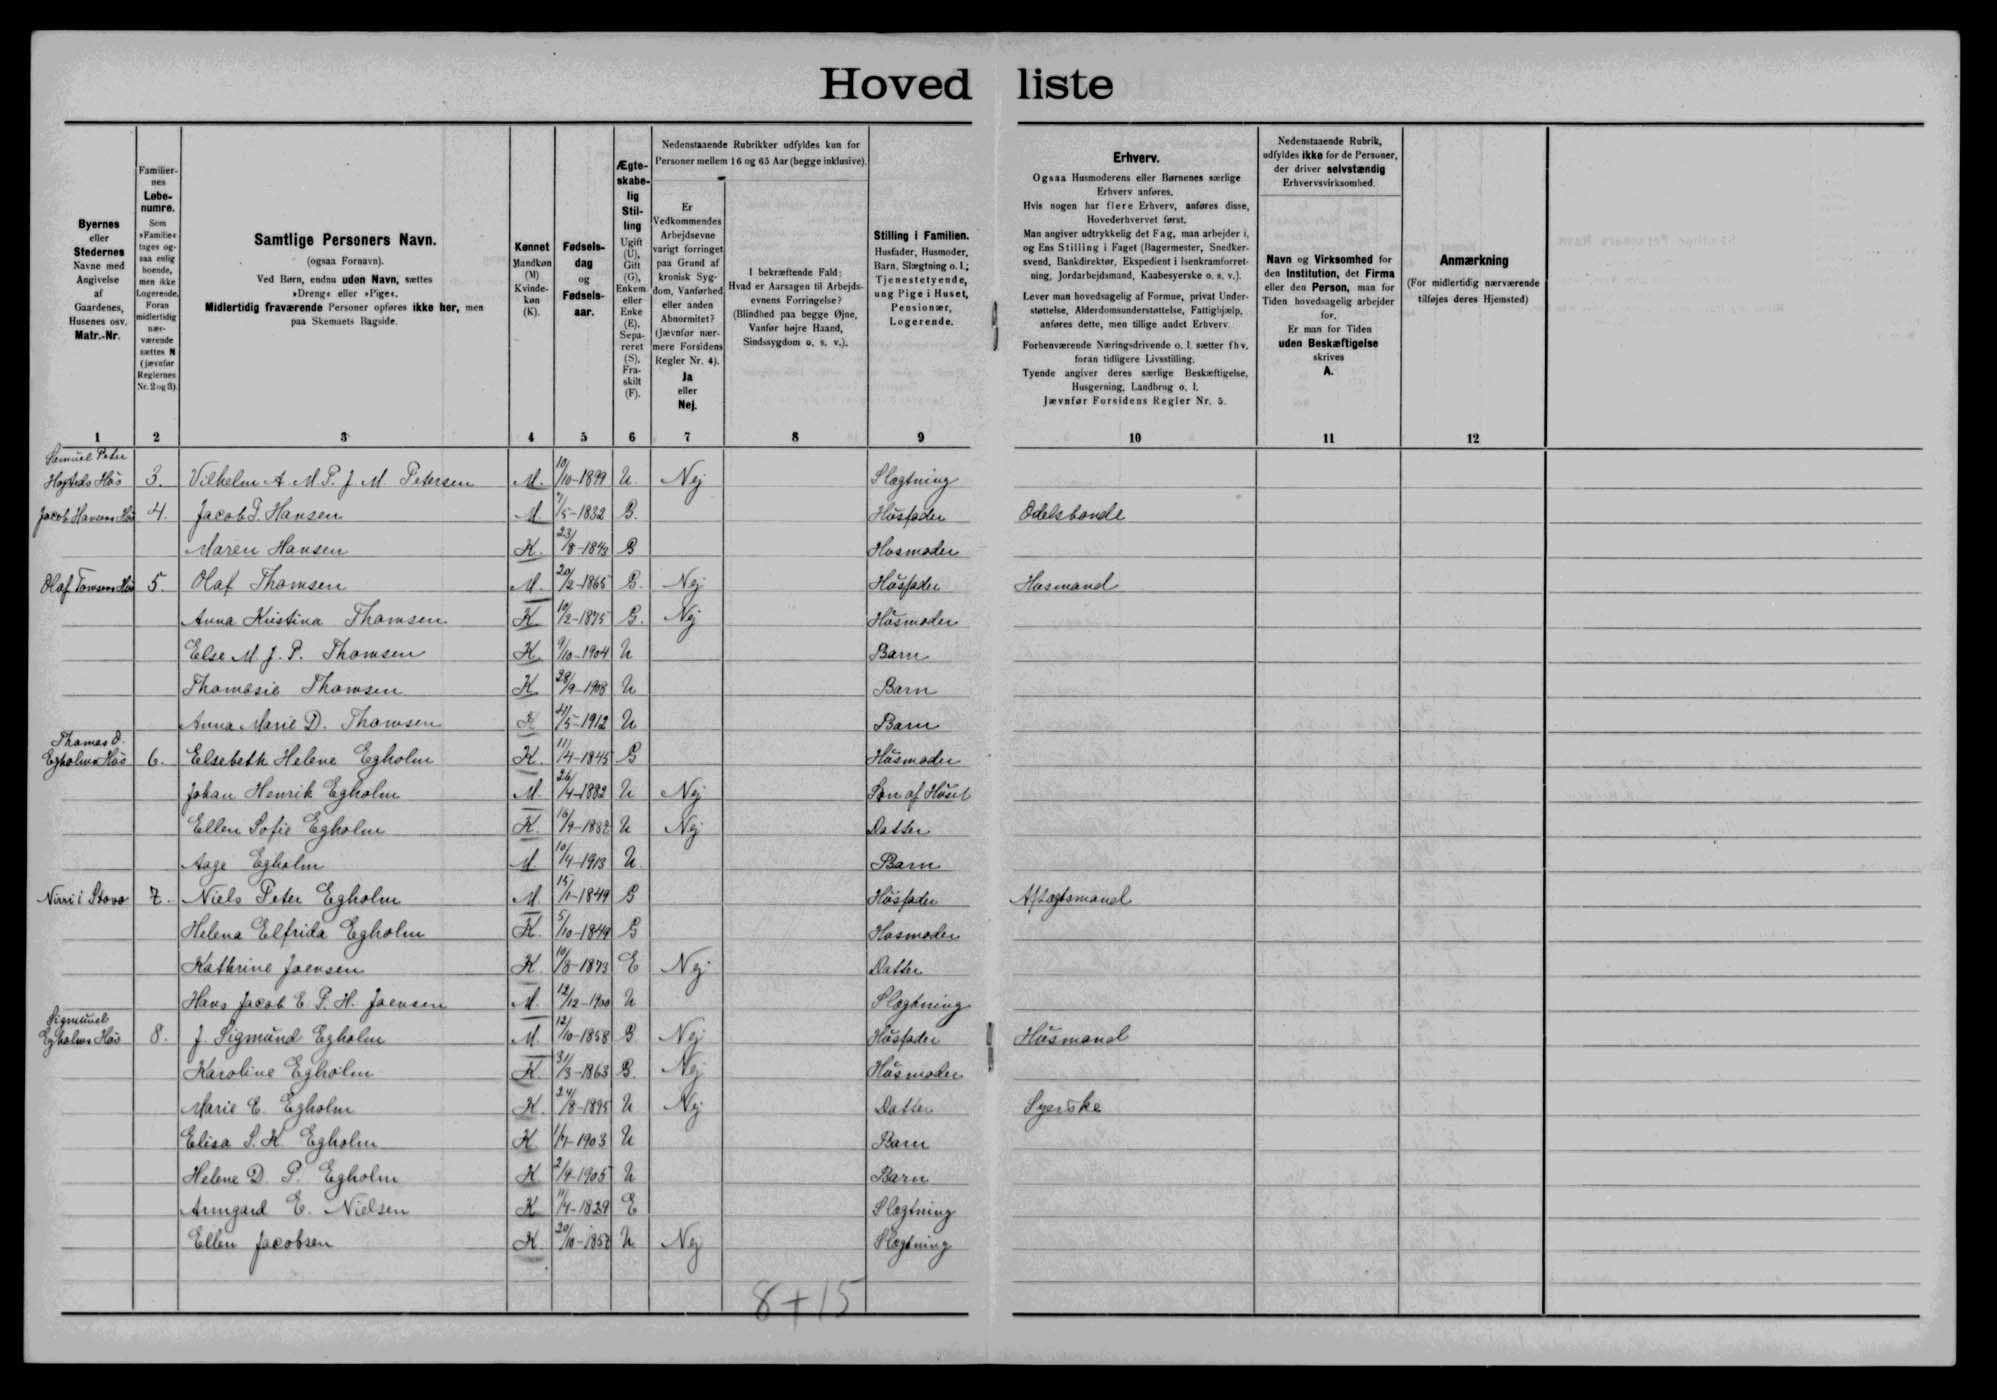 Hovedliste
Byernes eller Stedernes Navne med Angivelse af Gaardenes, Husenes osv. Matr.-Nr.
Familiernes Løbenumre. Som »Familie« tages ogsaa enlig boende, men ikke Logerende. Foran midlertidig nærværende sættes N (jævnfør Reglernes Nr. 2 og 3).
Samtlige Personers Navn.
(ogsaa Fornavn).
Ved Børn, endnu uden Navn, sættes
»Dreng« eller »Pige«.
Midlertidig fraværende Personer opføres ikke her, men
paa Skemaets Bagside.
Kønnet Mandkøn (M) Kvindekøn (K).
Fødselsdag og Fødselsaar.
Ægteskabelig Stilling Ugift (U), Gift (G), Enkem. eller Enke (E), Separeret (S), Fraskilt (F).
Nedenstaaende Rubrikker udfyldes kun for
Personer mellem 16 og 65 Aar (begge inklusive).
Er Vedkommendes Arbejdsevne varigt forringet paa Grund af kronisk Sygdom, Vanførhed eller anden Abnormitet? (Jævnfør nærmere Forsidens Regler Nr. 4). Ja eller Nej.
I bekræftende Fald: Hvad er Aarsagen til Arbejdsevnens Forringelse? (Blindhed paa begge Øjne, Vanfør højre Haand, Sindssygdom o. s. v.).
Stilling i Familien. Husfader, Husmoder, Barn, Slægtning o. l.; Tjenestetyende, ung Pige i Huset, Pensionær, Logerende.
Erhverv.
Ogsaa Husmoderens eller Børnenes særlige
Erhverv anføres.
Hvis nogen har flere Erhverv, anføres disse,
Hovederhvervet først.
Man angiver udtrykkelig det Fag, man arbejder i,
og Ens Stilling i Faget (Bagermester, Snedkersvend, Bankdirektør, Ekspedient i Isenkramforretning, Jordarbejdsmand, Kaabesyerske o. s. v.).
Lever man hovedsagelig af Formue, privat Understøttelse, Alderdomsunderstøttelse, Fattighjælp,
anføres dette, men tillige andet Erhverv.
Forhenværende Næringsdrivende o. l. sætter fhv.
foran tidligere Livsstilling.
Tyende angiver deres særlige Beskæftigelse,
Husgerning, Landbrug o. l.
Jævnfør Forsidens Regler Nr. 5.
Nedenstaaende Rubrik,
udfyldes ikke for de Personer,
der driver selvstændig
Erhvervsvirksomhed.
Navn og Virksomhed for
den Institution, det Firma
eller den Person, man for
Tiden hovedsagelig arbejder
for.
Er man for Tiden
uden Beskæftigelse
skrives
A.
Anmærkning
(For midlertidig nærværende
tilføjes deres Hjemsted)
1 2 3 4 5 6 7 8 9 10 11 12
Samuel Peter
Hús 3. Vilhelm A. M. P. J. M. Petersen M. 10/10-1899 U. Nej Slægtning
Jacob Hansens Hús 4. Jacob P. Hansen M 7/5-1832 G. Húsfader Odelsbonde
Maren Hansen K. 23/8-1843 G Húsmoder
Olaf Tomsens Hús 5. Olaf Thomsen M. 20/2-1865 G. Nej Húsfader Húsmand
Anna Kristina Thomsen K 19/2-1875 G. Nej Húsmoder
Else M. J. P. Thomsen K 9/10-1904 U Barn
Thomasie Thomsen K 28/9-1908 U Barn
Anna Marie D. Thomsen K 4/5-1912 U Barn
Thomas O.
Egholms Hús 6. Elsebeth Helene Egholm K. 11/4-1845 G Húsmoder
Johan Henrik Egholm M 26/4-1882 U Nej Søn af Húset
Ellen Sofie Egholm K. 16/9-1887 U Nej Datter
Aage Egholm M 10/4-1913 U. Barn
Nirri i Stovo 7. Niels Peter Egholm M. 15/1-1849 G Húsfader Aftægtsmand
Helena Elfrida Egholm K. 5/10-1849 G Húsmoder
Kathrine Joensen K. 10/8-1873 E Nej Datter
Hans Jacob E. P. H. Joensen M. 12/12-1900 U Slægtning
Sigmund
Egholms Hús 8. J. Sigmund Egholm M. 12/10-1858 G Nej Húsfader Húsmand
Karoline Egholm K. 31/3-1863 G. Nej Húsmoder
Marie E. Egholm K. 24/8-1895 U Nej Datter Syerske
Elisa S. K. Egholm K 1/7-1903 U Barn
Helene D. P. Egholm K 2/4-1905 U Barn
Armgard E. Nielsen K 11/4-1829 E Slægtning
Ellen Jacobsen K. 20/10-1857 U Nej Slægtning
8+15